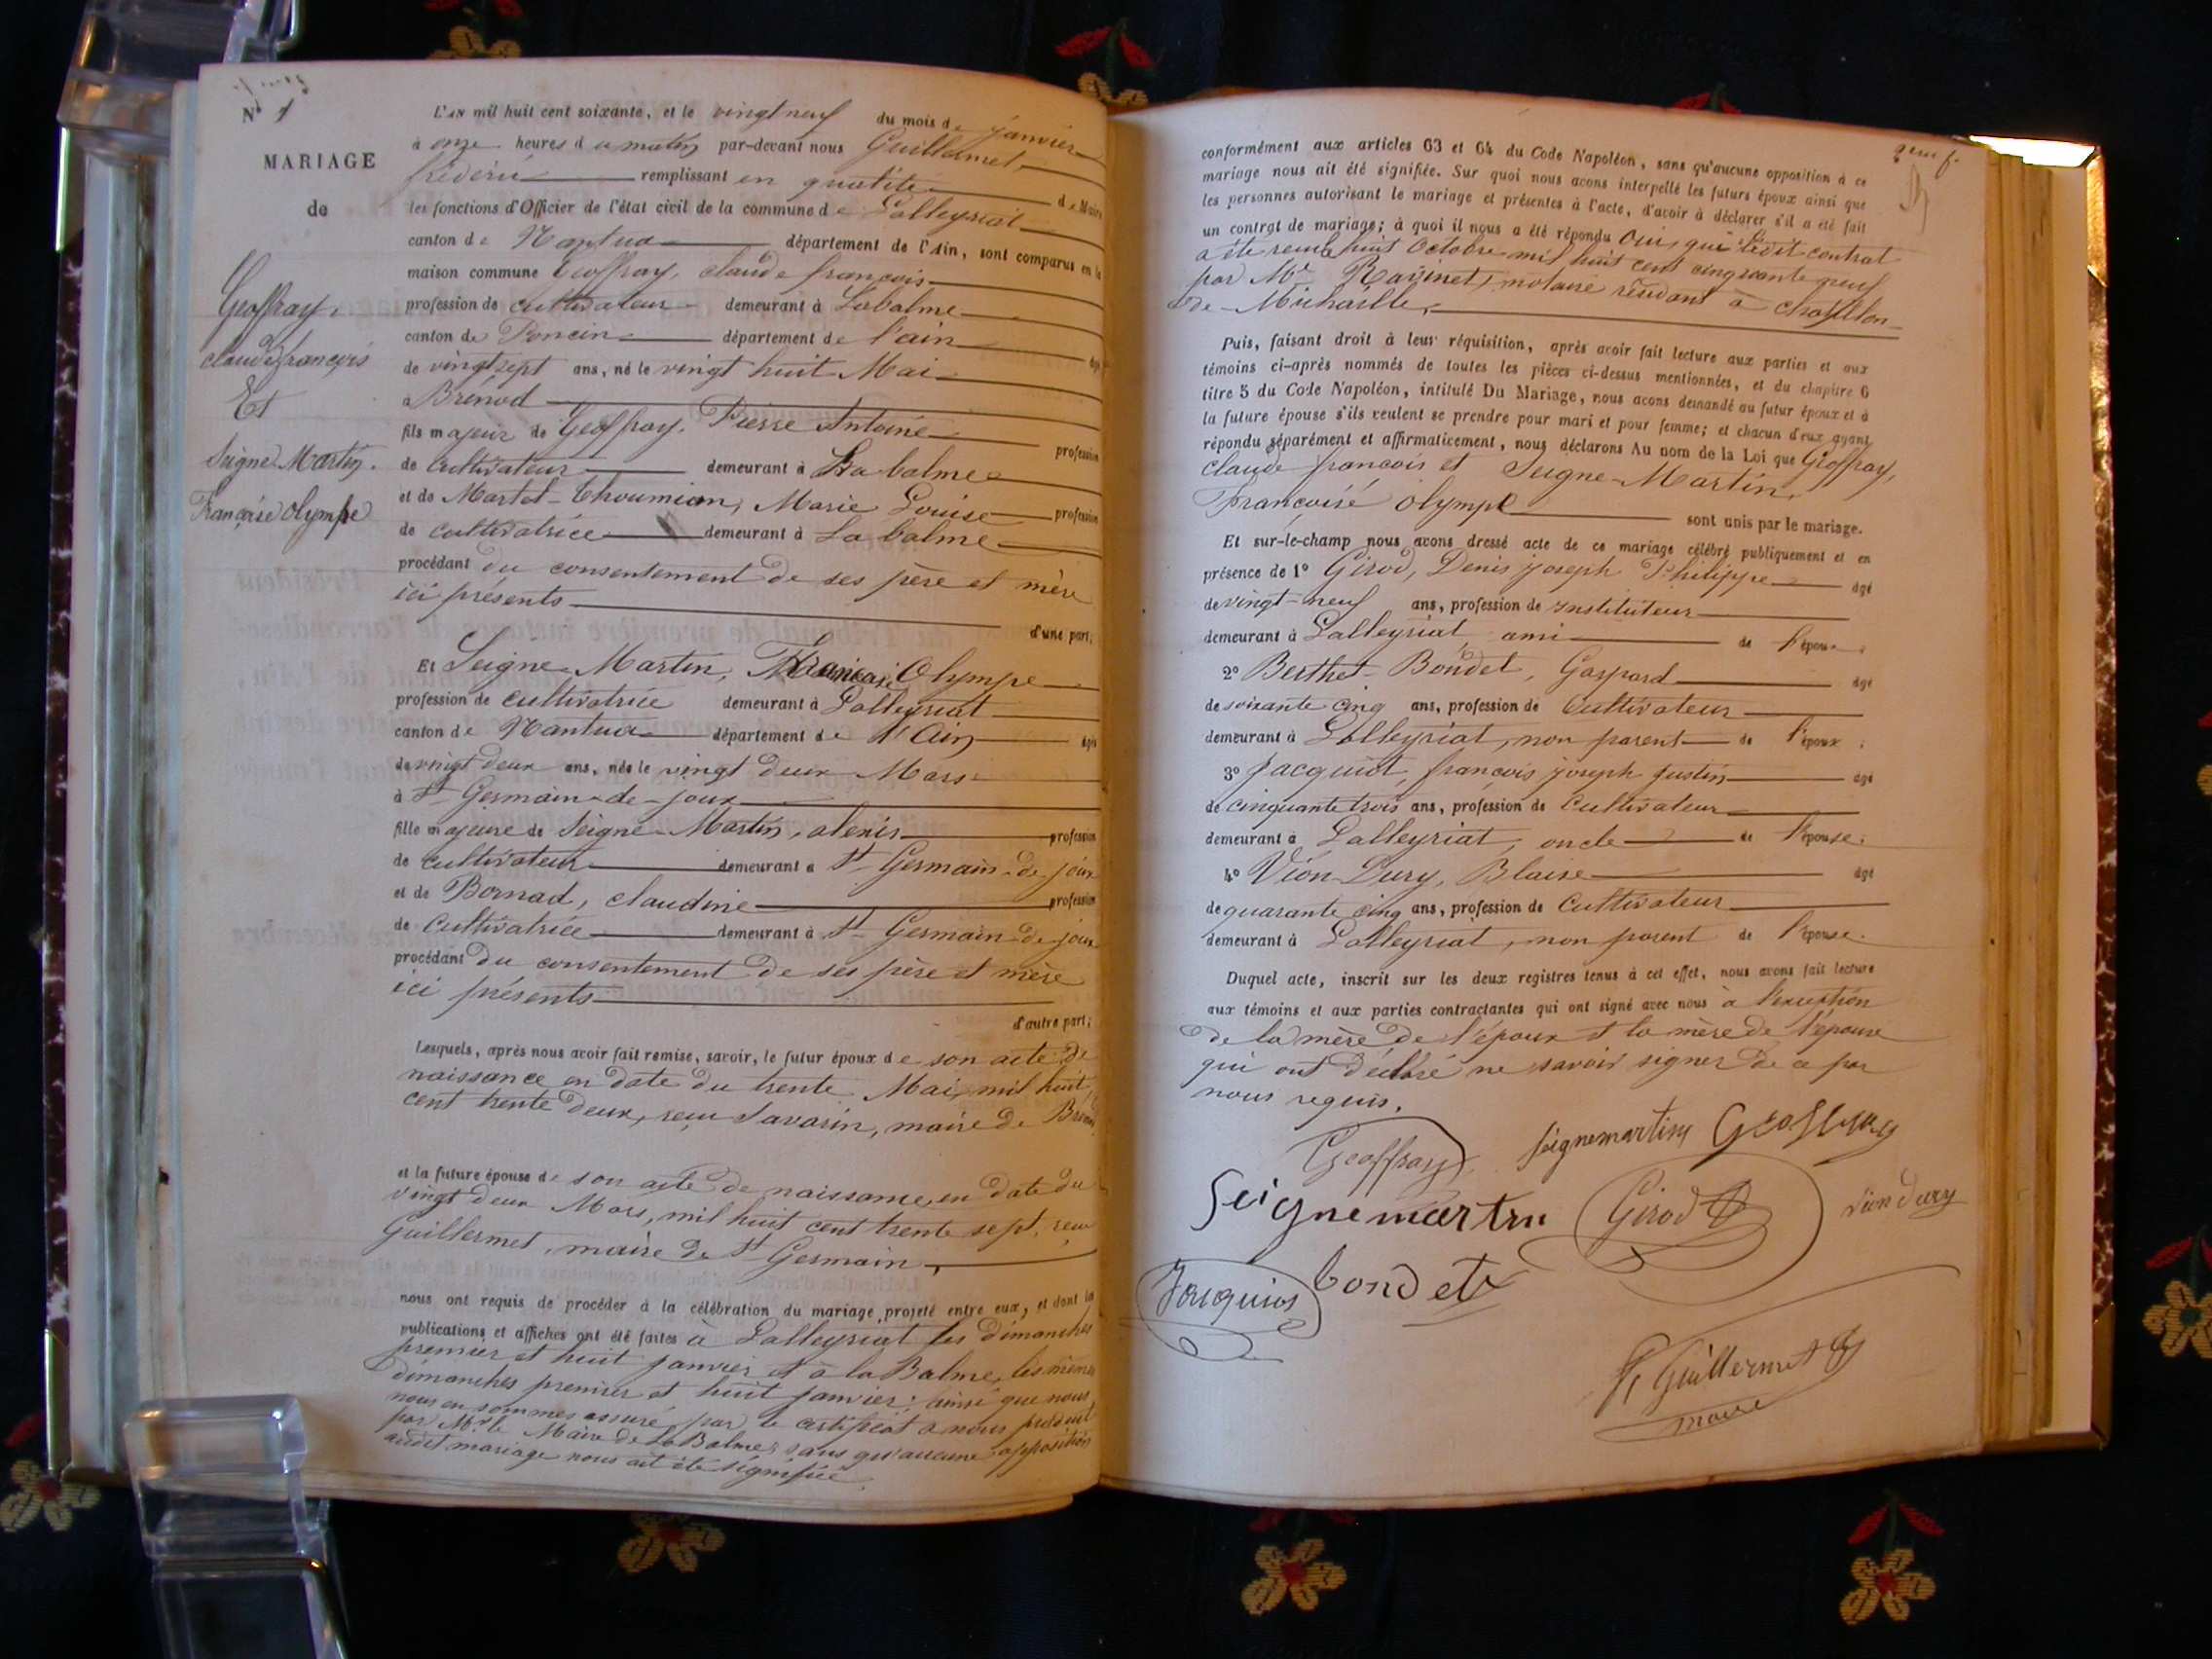 N° 1
MARIAGE
de
Geoffray,
claude françois
Et
Seigne-Martin.
Françoise Olympe
L'AN mil huit cent soixante, et le vingt neuf du mois de janvier
à onze heures du matin par-devant nous Guillermet,
frédéric remplissant en qualité de Maire
les fonctions d'Officier de l'état civil de la commune de Lalleyriat
canton de Nantua département de l'Ain, sont comparus en la
maison commune Geoffray, claude françois
profession de cultivateur demeurant à Labalme
canton de Poncin département de l'ain âgé
de vingt sept ans, né le vingt huit Mai
à Brénod
fils majeur de Geoffray, Pierre Antoine profession
de cultivateur demeurant à La balme
et de Martel-Thoumian, Marie Louise profession
de cultivatrice demeurant à La balme
procédant du consentement de ses père et mère
ici présents
d'une part;
Et Seigne-Martin, Françoise Olympe
profession de cultivatrice demeurant à Lalleyriat
canton de Nantua département de l'Ain âgée
de vingt deux ans, née le vingt deux Mars
à St Germain-de-joux
fille majeure de Seigne-Martin, alexis profession
de cultivateur demeurant à St Germain-de-joux
et de Bornad, claudine profession
de cultivatrice demeurant à St Germain-de-joux
procédant du consentement de ses père et mère
ici présents
d'autre part;
Lesquels, après nous avoir fait remise, savoir, le futur époux de son acte de
naissance en date du trente Mai, mil huit
cent trente deux, reçu Savarin, maire de Brénod
et la future épouse de son acte de naissance, en date du
vingt deux Mars, mil huit cent trente sept, reçu
Guillermet, maire de St Germain,
nous ont requis de procéder à la célébration du mariage projeté entre eux, et dont les
publications et affiches ont été faites à Lalleyriat les dimanches
premier et huit janvier et à la Balme, les mêmes
dimanches premier et huit janvier; ainsi que nous
nous en sommes assuré par le certificat a nous produit
par Mr le Maire de La Balme, sans qu'aucune opposition
audit mariage nous ait été signifiée.
conformément aux articles 63 et 64 du Code Napoléon, sans qu'aucune opposition à ce
mariage nous ait été signifiée. Sur quoi nous avons interpellé les futurs époux ainsi que
les personnes autorisant le mariage et présentes à l'acte, d'avoir à déclarer s'il a été fait
un contrat de mariage; à quoi il nous a été répondu Oui, qui ledit contrat
a été rendu huit Octobre mil huit cent cinquante neuf
par Me Ravinet, notaire résidant à Chatillon
de Michaille,
Puis, faisant droit à leur réquisition, après avoir fait lecture aux parties et aux
témoins ci-après nommés de toutes les pièces ci-dessus mentionnées, et du chapitre 6
titre 5 du Code Napoléon, intitulé Du Mariage, nous avons demandé au futur époux et à
la future épouse s'ils veulent se prendre pour mari et pour femme; et chacun d'eux ayant
répondu séparément et affirmativement, nous déclarons Au nom de la Loi que Geoffray,
claude françois et Seigne-Martin,
Françoise Olympe sont unis par le mariage.
Et sur-le-champ nous avons dressé acte de ce mariage célébré publiquement et en
présence de 1° Girod, Denis joseph Philippe âgé
de vingt-neuf ans, profession de instituteur
demeurant à Lalleyriat, ami de l'époux;
2° Berthet-Bondet, Gaspard âgé
de soixante cinq ans, profession de Cultivateur
demeurant à Lalleyriat, non parent de l'époux;
3° Jacquiot, françois joseph justin âgé
de cinquante trois ans, profession de Cultivateur
demeurant à Lalleyriat, oncle de l'épouse;
4° Vion-Dury, Blaise âgé
de quarante cinq ans, profession de Cultivateur
demeurant à Lalleyriat, non parent de l'épouse.
Duquel acte, inscrit sur les deux registres tenus à cet effet, nous avons fait lecture
aux témoins et aux parties contractantes qui ont signé avec nous à l'exception
de la mère de l'époux et la mère de l'épouse
qui ont déclaré ne savoir signer de ce par
nous requis.
Geoffray seignemartin Geoffray
Seignemartin Girod viondury
Jacquiot bondet
F. Guillermet
maire